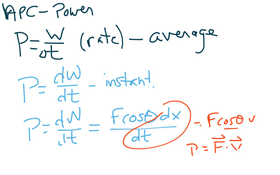 APC - Power
P = W/Δt (rate) - average
P = dW/dt - instant.
P = dW/dt = Fcosθ dx/dt = Fcosθ v
P = F⃗ · v⃗